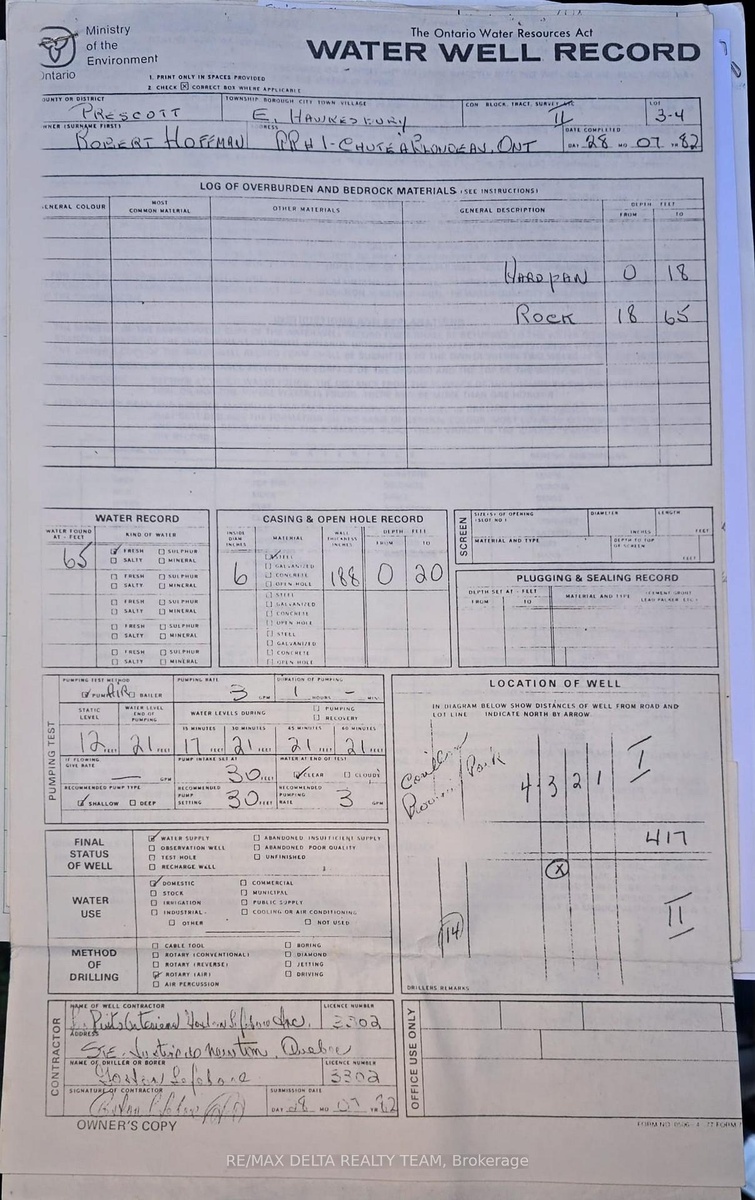 Ministry
of the
Environment
Ontario
The Ontario Water Resources Act
WATER WELL RECORD
1. PRINT ONLY IN SPACES PROVIDED
2. CHECK ☒ CORRECT BOX WHERE APPLICABLE
COUNTY OR DISTRICT TOWNSHIP BOROUGH CITY TOWN VILLAGE CON BLOCK, TRACT, SURVEY ETC LOT
PRESCOTT E. HAWKESBURY II 3-4
OWNER (SURNAME FIRST) ADDRESS DATE COMPLETED
ROBERT HOFFMAN RR# 1-CHUTE A BLONDEAU, ONT DAY 28 MO 07 YR 82
LOG OF OVERBURDEN AND BEDROCK MATERIALS (SEE INSTRUCTIONS)
GENERAL COLOUR MOST COMMON MATERIAL OTHER MATERIALS GENERAL DESCRIPTION DEPTH FEET
FROM TO
HARDPAN 0 18
ROCK 18 65
WATER RECORD
WATER FOUND AT - FEET KIND OF WATER
65 ☑ FRESH ☐ SULPHUR
☐ SALTY ☐ MINERAL
☐ FRESH ☐ SULPHUR
☐ SALTY ☐ MINERAL
☐ FRESH ☐ SULPHUR
☐ SALTY ☐ MINERAL
☐ FRESH ☐ SULPHUR
☐ SALTY ☐ MINERAL
☐ FRESH ☐ SULPHUR
☐ SALTY ☐ MINERAL
CASING & OPEN HOLE RECORD
INSIDE DIAM INCHES MATERIAL WALL THICKNESS INCHES DEPTH FEET
FROM TO
6 ☑ STEEL 188 0 20
☐ GALVANIZED
☐ CONCRETE
☐ OPEN HOLE
☐ STEEL
☐ GALVANIZED
☐ CONCRETE
☐ OPEN HOLE
☐ STEEL
☐ GALVANIZED
☐ CONCRETE
☐ OPEN HOLE
SCREEN
SIZE(S) OF OPENING (SLOT NO) DIAMETER LENGTH
INCHES FEET
MATERIAL AND TYPE DEPTH TO TOP OF SCREEN
FEET
PLUGGING & SEALING RECORD
DEPTH SET AT - FEET MATERIAL AND TYPE (CEMENT GROUT LEAD PACKER, ETC.)
FROM TO
PUMPING TEST
PUMPING TEST METHOD PUMPING RATE DURATION OF PUMPING
☑ PUMP AIR ☐ BAILER 3 GPM 1 HOURS — MIN
STATIC LEVEL WATER LEVEL END OF PUMPING WATER LEVELS DURING ☐ PUMPING
☐ RECOVERY
15 MINUTES 30 MINUTES 45 MINUTES 60 MINUTES
12 FEET 21 FEET 17 FEET 21 FEET 21 FEET 21 FEET
IF FLOWING GIVE RATE PUMP INTAKE SET AT WATER AT END OF TEST
GPM 30 FEET ☑ CLEAR ☐ CLOUDY
RECOMMENDED PUMP TYPE RECOMMENDED PUMP SETTING RECOMMENDED PUMPING RATE
☑ SHALLOW ☐ DEEP 30 FEET 3 GPM
LOCATION OF WELL
IN DIAGRAM BELOW SHOW DISTANCES OF WELL FROM ROAD AND
LOT LINE INDICATE NORTH BY ARROW.
Park
4 3 2 1 I
417
X
II
14
DRILLERS REMARKS
FINAL STATUS OF WELL
☑ WATER SUPPLY ☐ ABANDONED INSUFFICIENT SUPPLY
☐ OBSERVATION WELL ☐ ABANDONED POOR QUALITY
☐ TEST HOLE ☐ UNFINISHED
☐ RECHARGE WELL
WATER USE
☑ DOMESTIC ☐ COMMERCIAL
☐ STOCK ☐ MUNICIPAL
☐ IRRIGATION ☐ PUBLIC SUPPLY
☐ INDUSTRIAL ☐ COOLING OR AIR CONDITIONING
☐ OTHER ☐ NOT USED
METHOD OF DRILLING
☐ CABLE TOOL ☐ BORING
☐ ROTARY (CONVENTIONAL) ☐ DIAMOND
☐ ROTARY (REVERSE) ☐ JETTING
☑ ROTARY (AIR) ☐ DRIVING
☐ AIR PERCUSSION
CONTRACTOR
NAME OF WELL CONTRACTOR LICENCE NUMBER
Inc. 3302
ADDRESS
Ste. Justine de Newton, Quebec
NAME OF DRILLER OR BORER LICENCE NUMBER
Lefebvre 3302
SIGNATURE OF CONTRACTOR SUBMISSION DATE
DAY 28 MO 07 YR 82
OFFICE USE ONLY
OWNER'S COPY
RE/MAX DELTA REALTY TEAM, Brokerage